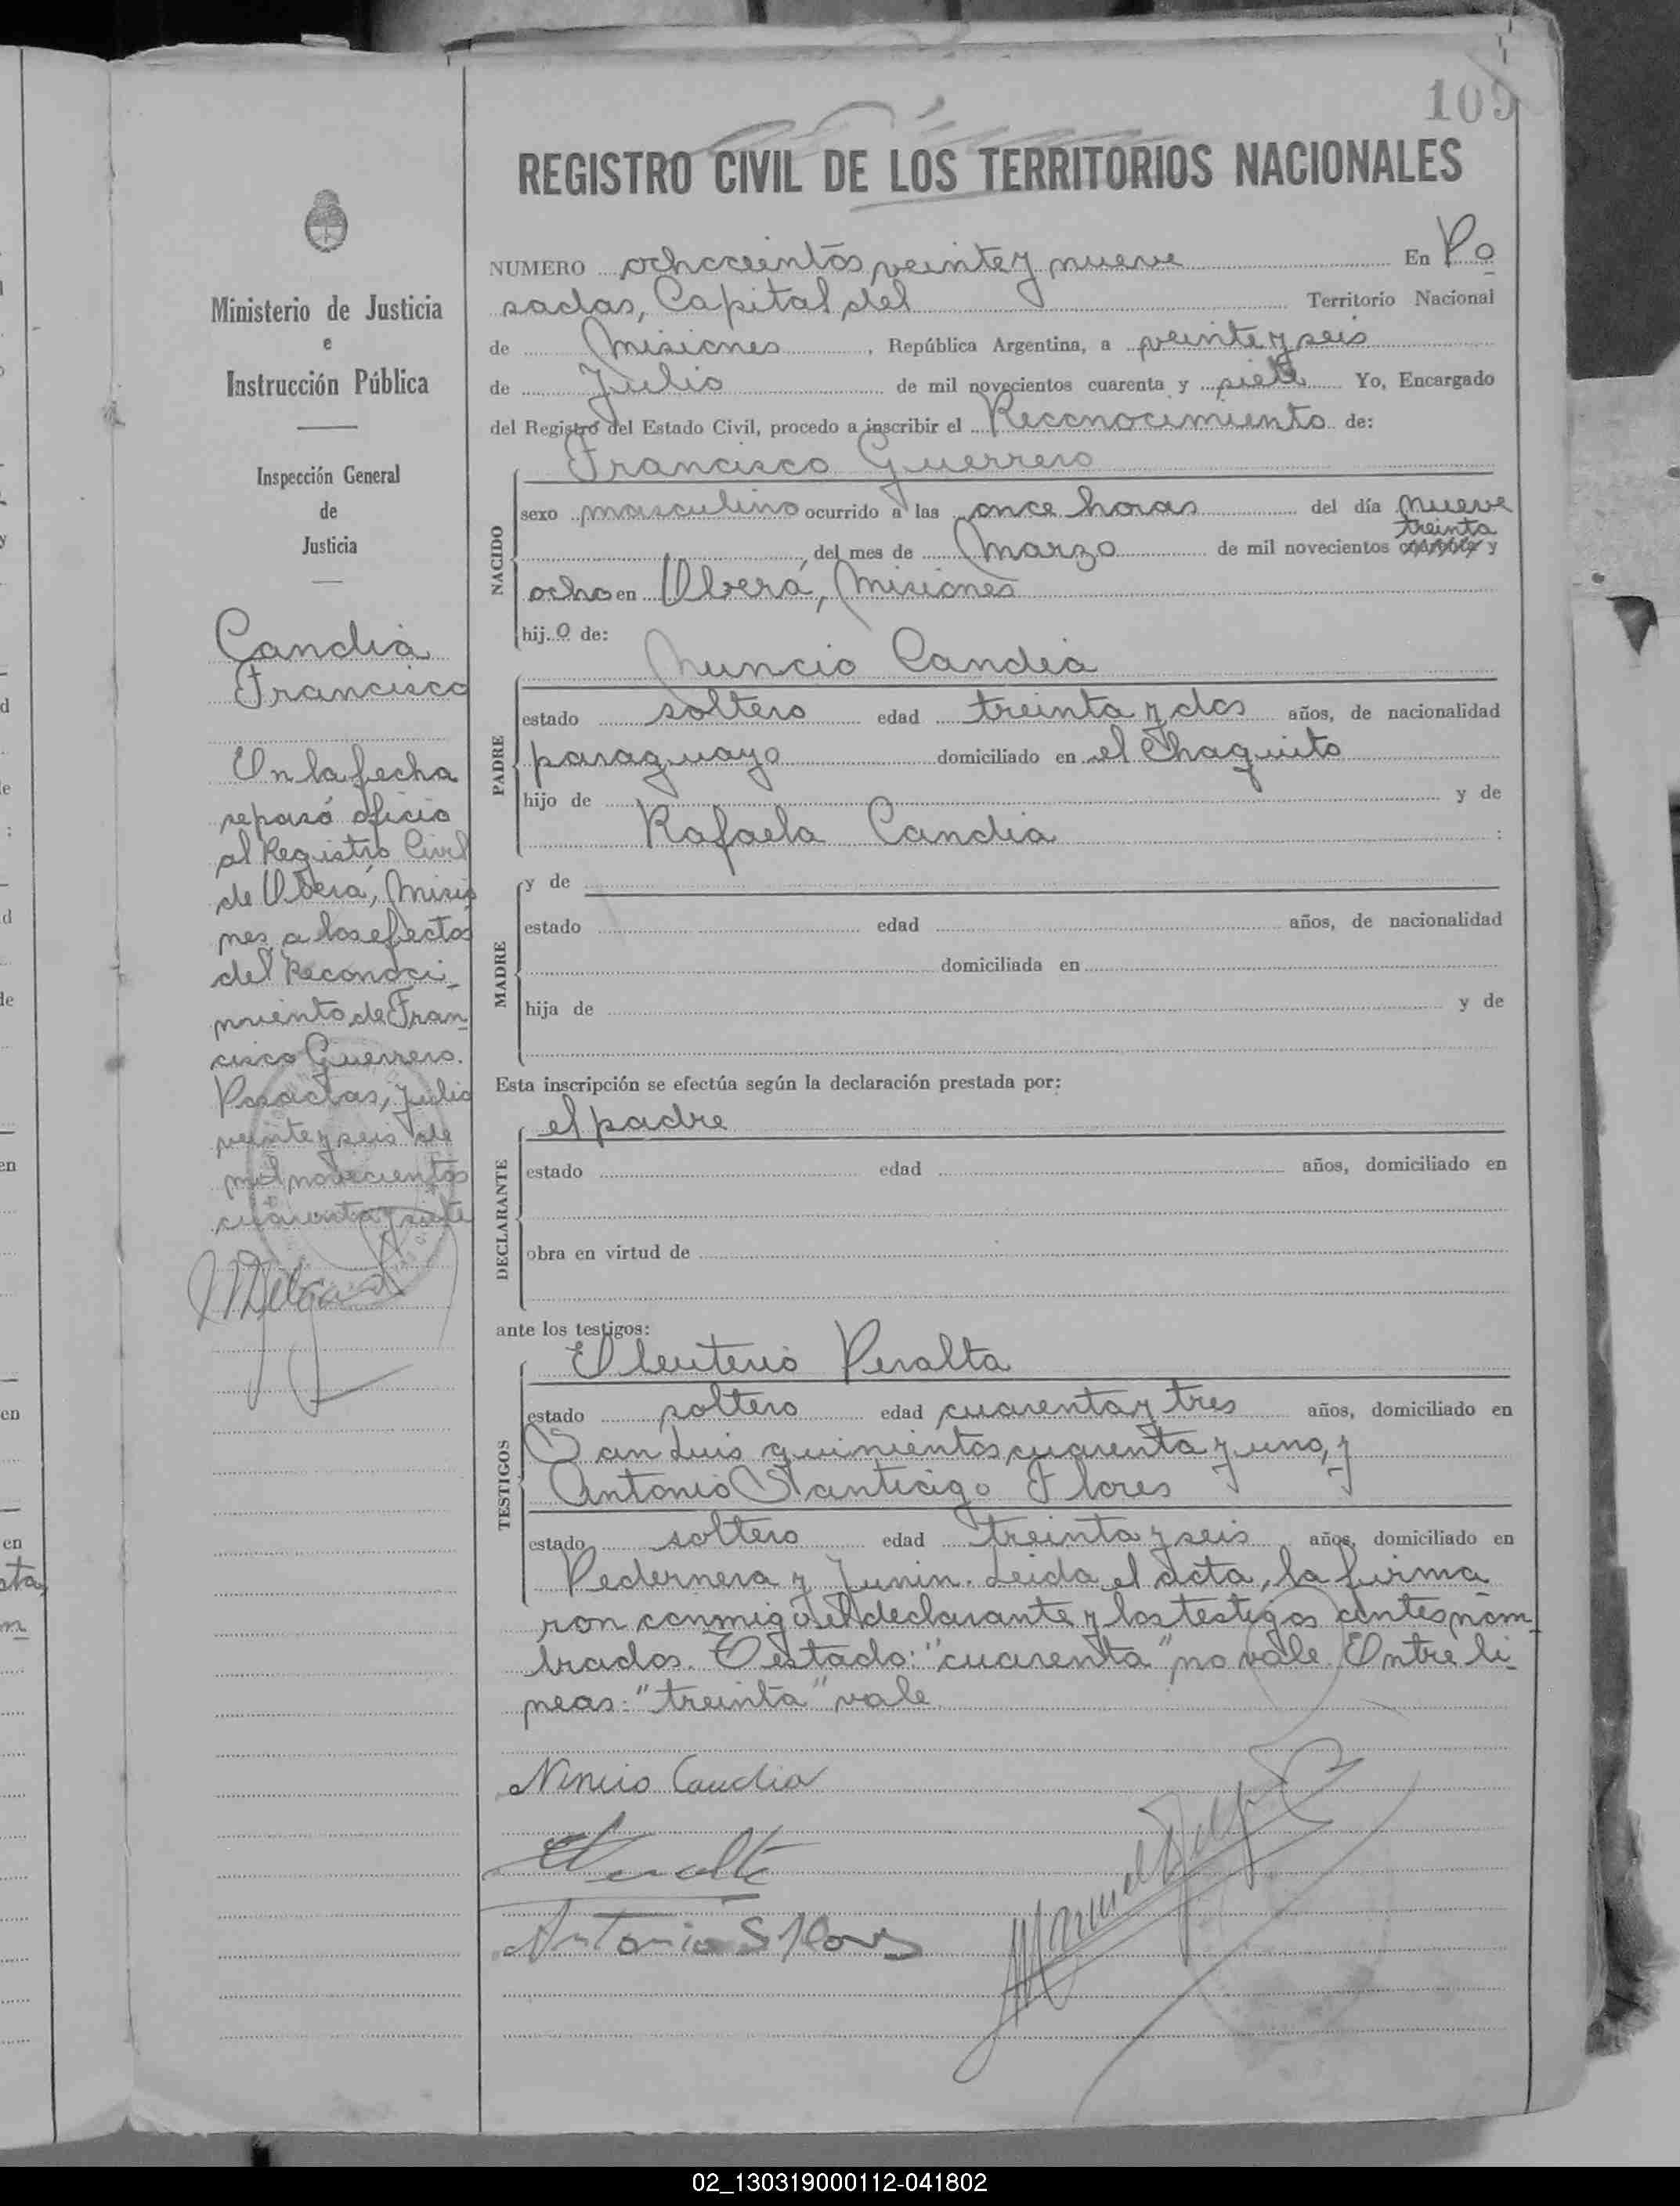 109
REGISTRO CIVIL DE LOS TERRITORIOS NACIONALES
NUMERO ochocientos veinte y nueve En Po
sadas, Capital del Territorio Nacional
de Misiones, República Argentina, a veinte y seis
de Julio de mil novecientos cuarenta y siete Yo, Encargado
del Registro del Estado Civil, procedo a inscribir el Reconocimiento de:
Francisco Guerrero
NACIDO
sexo masculino ocurrido a las once horas del día nueve
treinta
del mes de Marzo de mil novecientos cuarenta y
ocho en Oberá, Misiones
hij.o de:
PADRE
Nuncio Candia
estado soltero edad treinta y dos años, de nacionalidad
paraguayo domiciliado en el Chaquito
hijo de y de
Rafaela Candia
MADRE
y de
estado edad años, de nacionalidad
domiciliada en
hija de y de
Esta inscripción se efectúa según la declaración prestada por:
DECLARANTE
el padre
estado edad años, domiciliado en
obra en virtud de
ante los testigos:
TESTIGOS
Eleuterio Peralta
estado soltero edad cuarenta y tres años, domiciliado en
San Luis quinientos cuarenta y uno, y
Antonio Santiago Flores
estado soltero edad treinta y seis años, domiciliado en
Pedernera y Junin. Leida el acta, la firma
ron conmigo el declarante y los testigos antes nom_
brados. Testado: "cuarenta" no vale. Entre li_
neas: "treinta" vale
Nuncio Candia
EPeralta
Antonio S Flores
Manuel
Ministerio de Justicia
e
Instrucción Pública
Inspección General
de
Justicia
Candia
Francisco
En la fecha
se pasó oficio
al Registro Civil
de Oberá, Misio
nes, a los efectos
del Reconoci_
miento de Fran_
cisco Guerrero.
Posadas, Julio
veinte y seis de
mil novecientos
cuarenta y siete
02_130319000112-041802